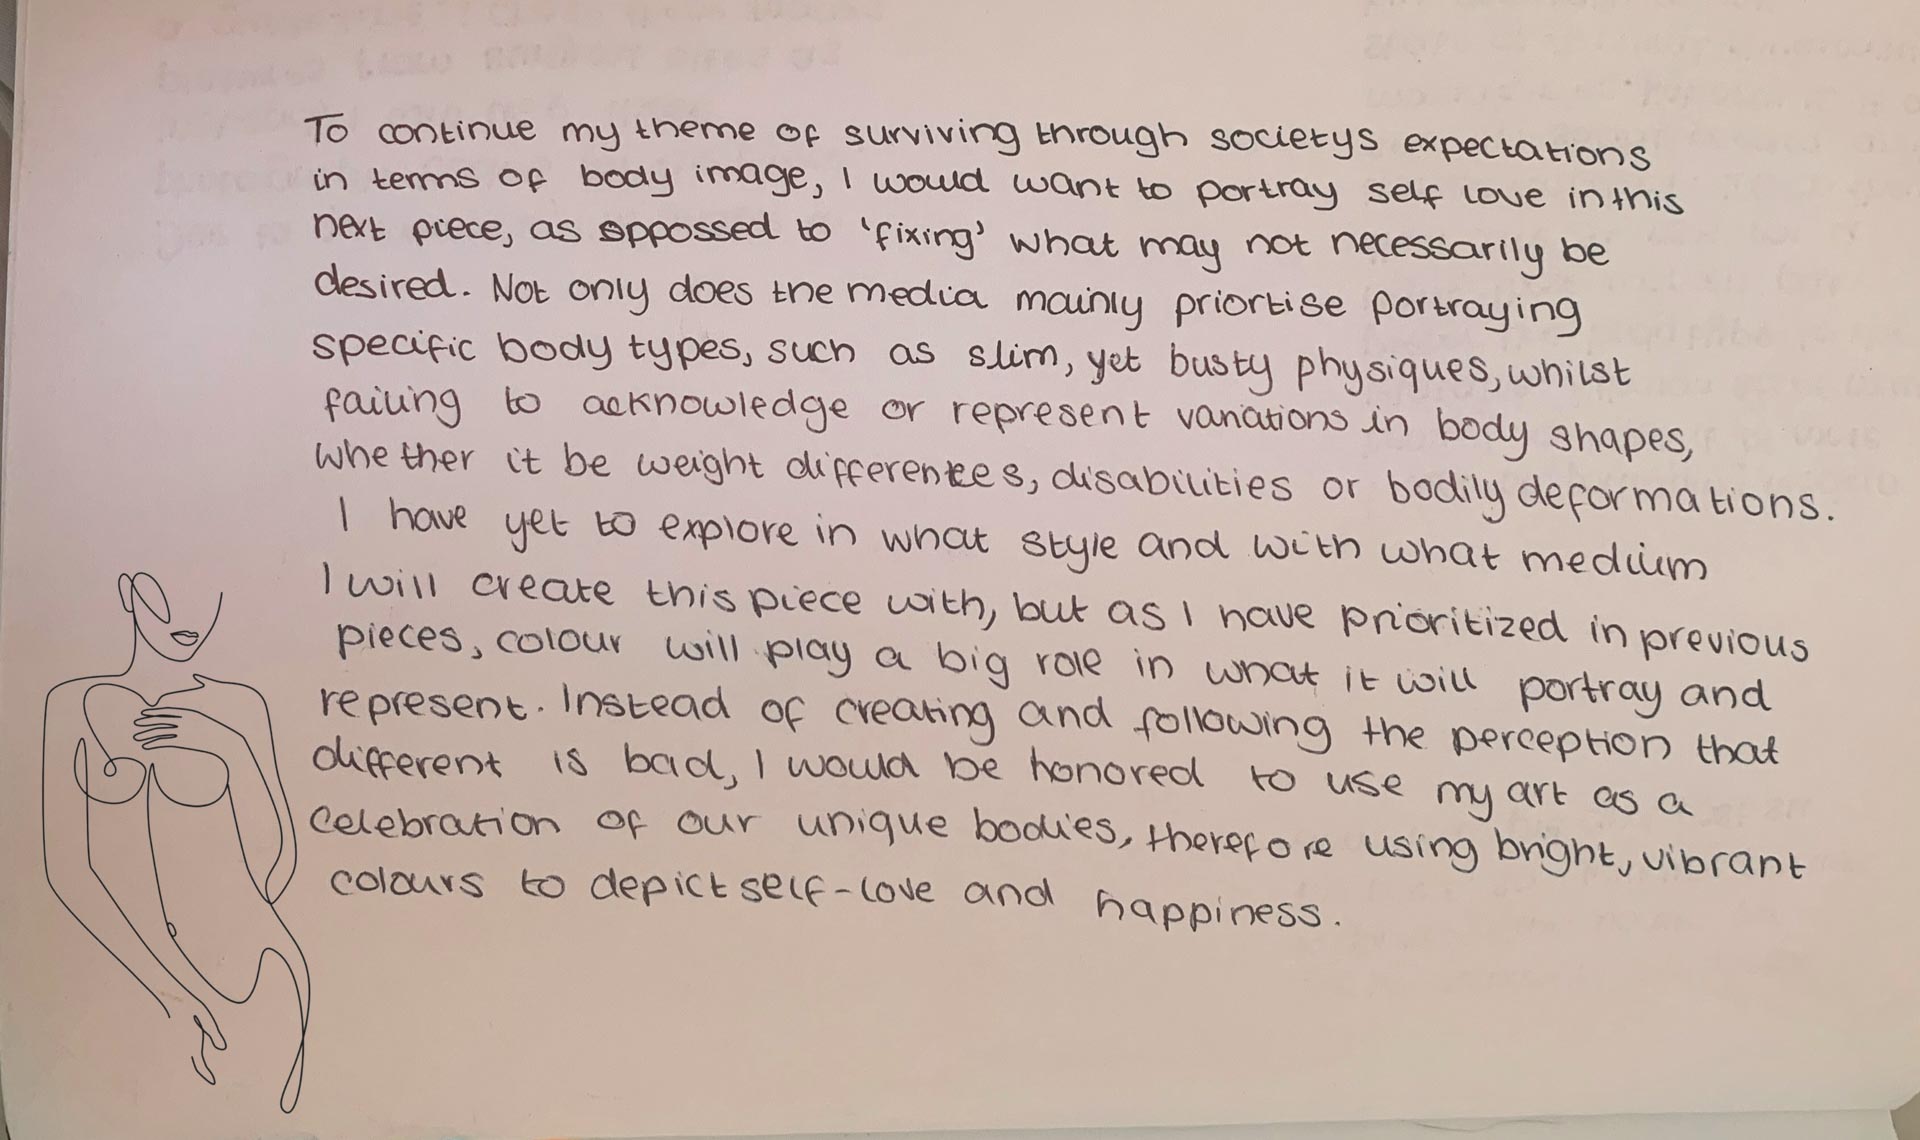 To continue my theme of surviving through societys expectations
in terms of body image, I would want to portray self love in this
next piece, as oppossed to 'fixing' what may not necessarily be
desired. Not only does the media mainly priortise portraying
specific body types, such as slim, yet busty physiques, whilst
failing to acknowledge or represent variations in body shapes,
whether it be weight differences, disabilities or bodily deformations.
I have yet to explore in what style and with what medium
I will create this piece with, but as I have prioritized in previous
pieces, colour will play a big role in what it will portray and
represent. Instead of creating and following the perception that
different is bad, I would be honored to use my art as a
celebration of our unique bodies, therefore using bright, vibrant
colours to depict self-love and happiness.